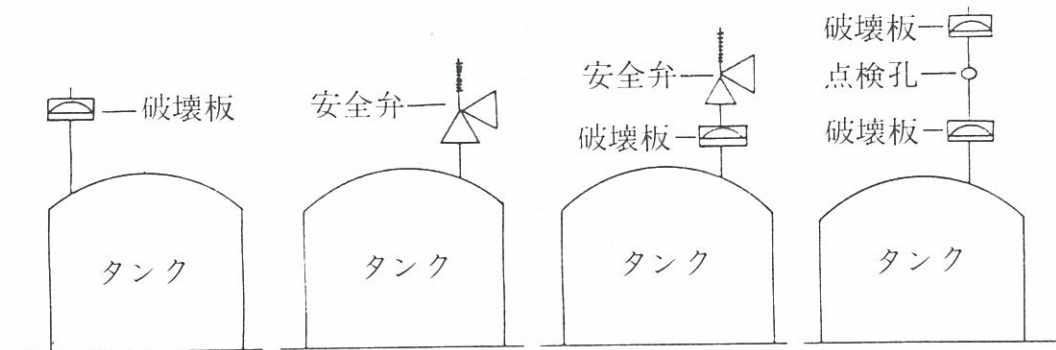 破壊板
タンク
安全弁
タンク
安全弁
破壊板
タンク
破壊板
点検孔
破壊板
タンク